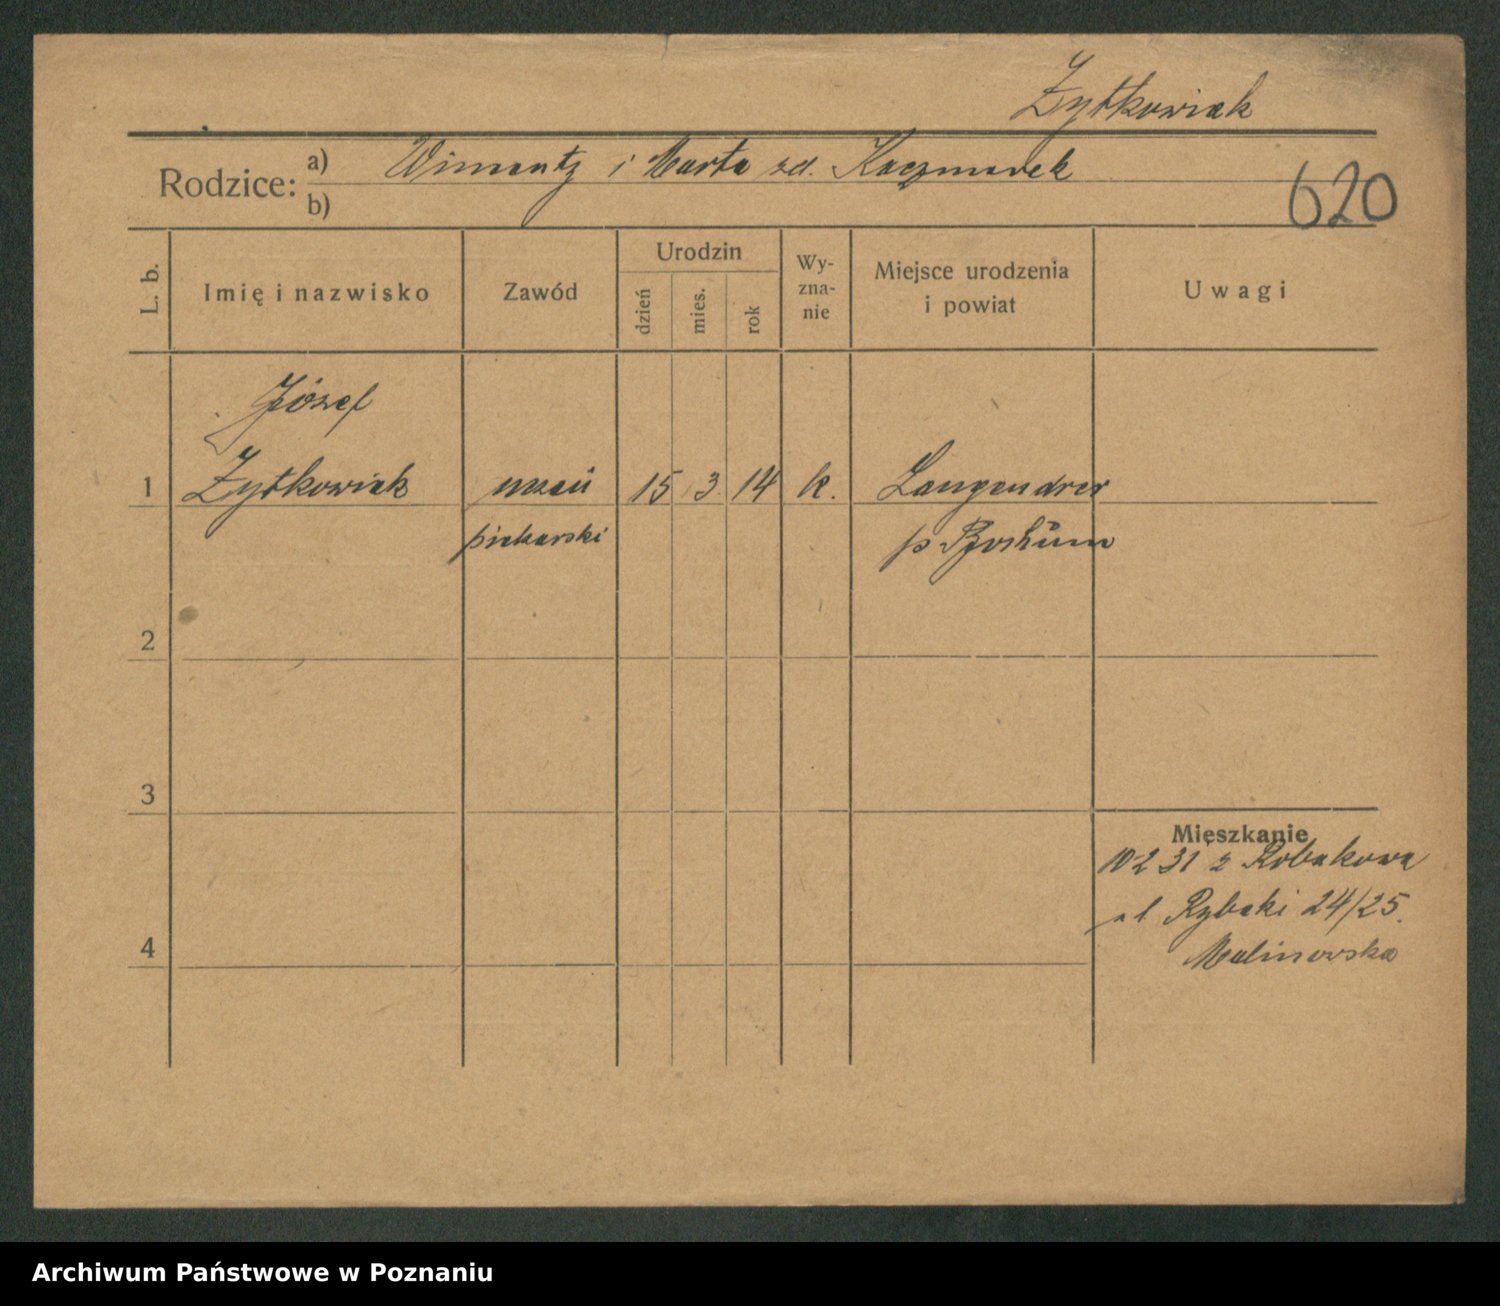 Żytkowiak
Rodzice: a) Wincenty i Marta zd. Kaczmarek
b)
620
L. b.
Imię i nazwisko
Zawód
Urodzin
dzień
mies.
rok
Wy-
zna-
nie
Miejsce urodzenia
i powiat
Uwagi
Józef
1 Żytkowiak uczeń 15 3 14 k. Langendreer
piekarski p Bochum
2
3
4
Mieszkanie
10 2 31 z Robakowa
ul Rybaki 24/25.
Malinowska
Archiwum Państwowe w Poznaniu